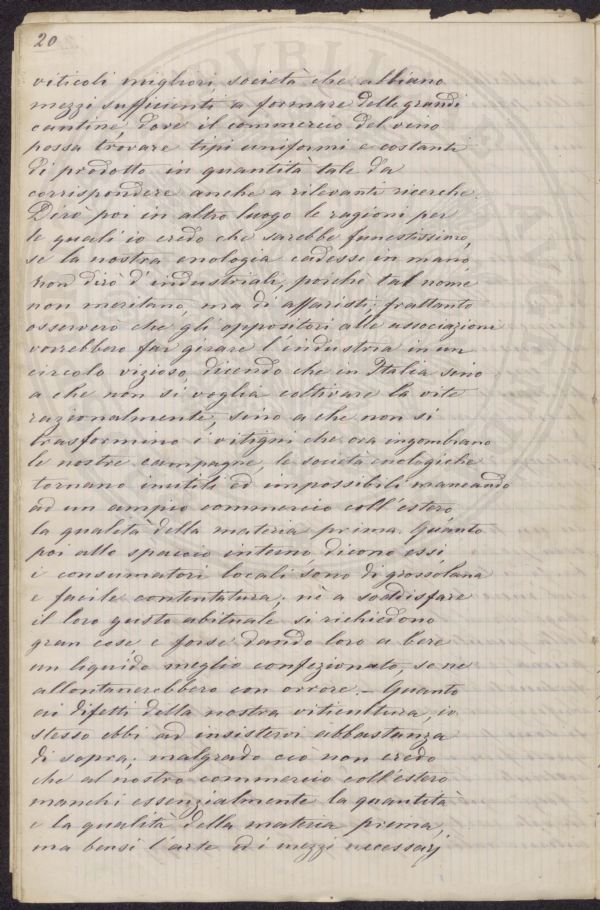 20
viticoli migliori, società che abbiano
mezzi sufficienti a formare delle grandi
cantine, dove il commercio del vino
possa trovare tipi uniformi e costanti
di prodotto in quantità tale da
corrispondere anche a rilevanti ricerche.
Dirò poi in altro luogo le ragioni per
le quali io credo che sarebbe funestissimo,
se la nostra enologia cadesse in mano,
non dirò d'industriali, poichè tal nome
non meritano, ma di affaristi; frattanto
osserverò che gli oppositori alle associazioni
vorrebbero far girare l'industria in un
circolo vizioso, dicendo che in Italia sino
a che non si voglia coltivare la vite
razionalmente, sino a che non si
trasformino i vitigni che ora ingombrano
le nostre campagne, le società enologiche
tornano inutili ed impossibili mancando
ad un ampio commercio coll'estero
la qualità della materia prima. Quanto
poi allo spaccio interno dicono essi
i consumatori locali sono di grossolana
e facile contentatura; nè a soddisfare
il loro gusto abituale si richiedono
gran cose, e forse dando loro a bere
un liquido meglio confezionato, se ne
allontanerebbero con orrore. - Quanto
ai difetti della nostra viticultura, io
stesso ebbi ad insistervi abbastanza
di sopra; malgrado ciò non credo
che al nostro commercio coll'estero
manchi essenzialmente la quantità
e la qualità della materia prima,
ma bensì l'arte ed i mezzi necessarj